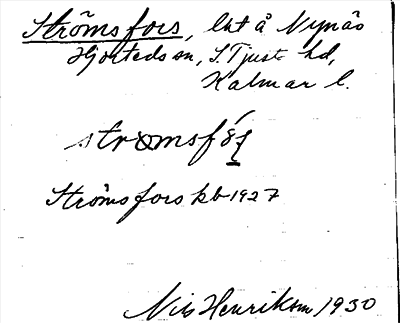 Strömsfors, lht å Nynäs
Hjorteds sn, S. Tjusts hd,
Kalmar l.
Strömsfors kb 1927
Nils Henrikson 1930